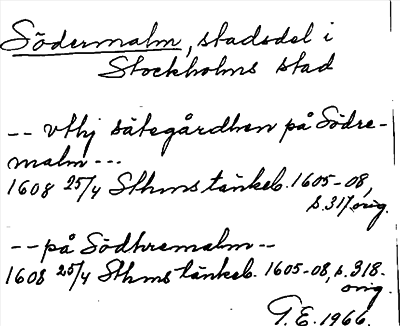 Södermalm, stadsdel i
Stockholms stad
-- vthj sätegårdhen på Södre-
malm ---
1608 25/4 Sthms tänkeb. 1605-08,
s. 317 orig.
-- på Södhremalm --
1608 25/4 Sthms tänkeb. 1605-08, s. 318-
orig.
G.E. 1966.